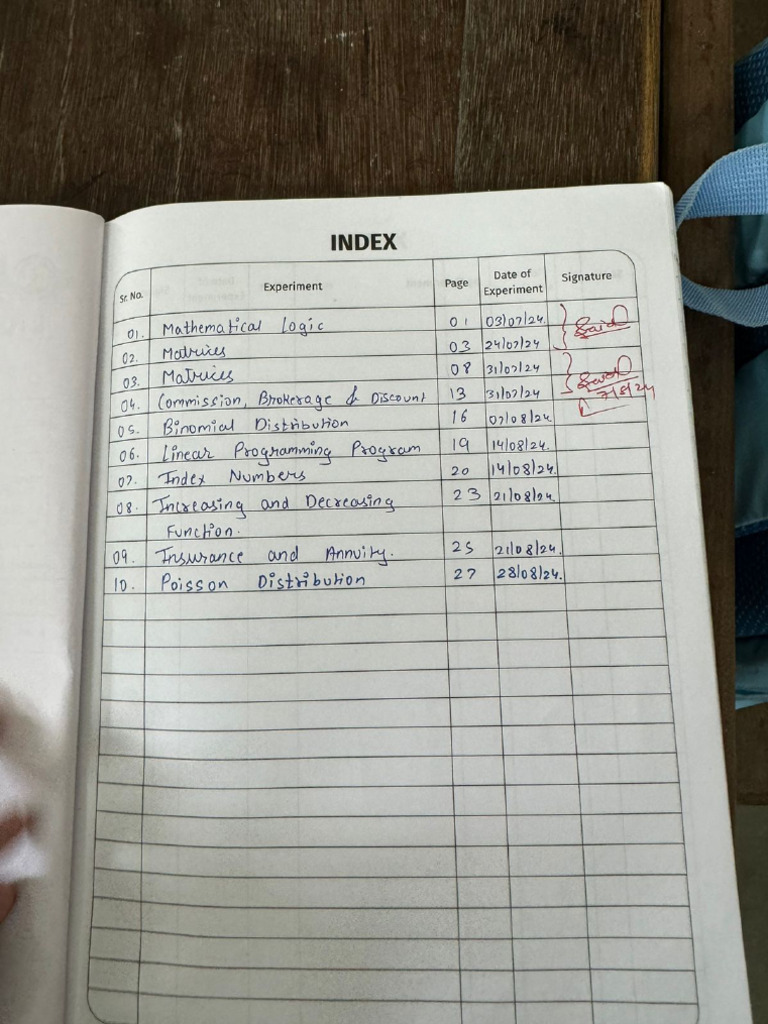 INDEX
Sr. No. Experiment Page Date of Experiment Signature
01. Mathematical Logic 01 03/07/24.
02. Matrices 03 24/07/24
03. Matrices 08 31/07/24
04. Commission, Brokerage & Discount 13 31/07/24 7/8/24
05. Binomial Distribution 16 07/08/24.
06. Linear Programming Program 19 14/08/24.
07. Index Numbers 20 14/08/24.
08. Increasing and Decreasing 23 21/08/24.
Function.
09. Insurance and Annuity. 25 21/08/24.
10. Poisson Distribution 27 28/08/24.